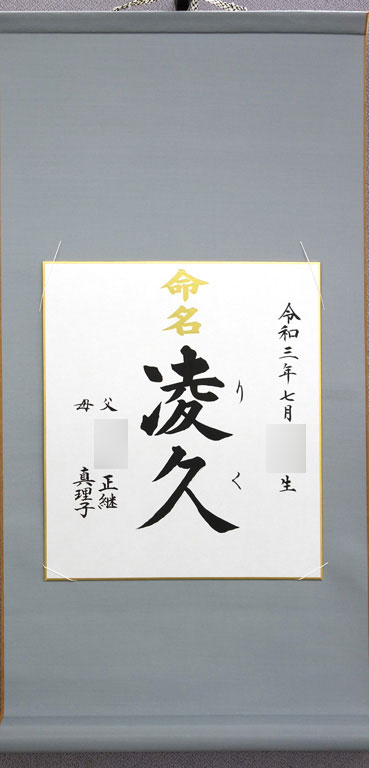 命名
令和三年七月 生
凌久
りく
父 正継
母 真理子